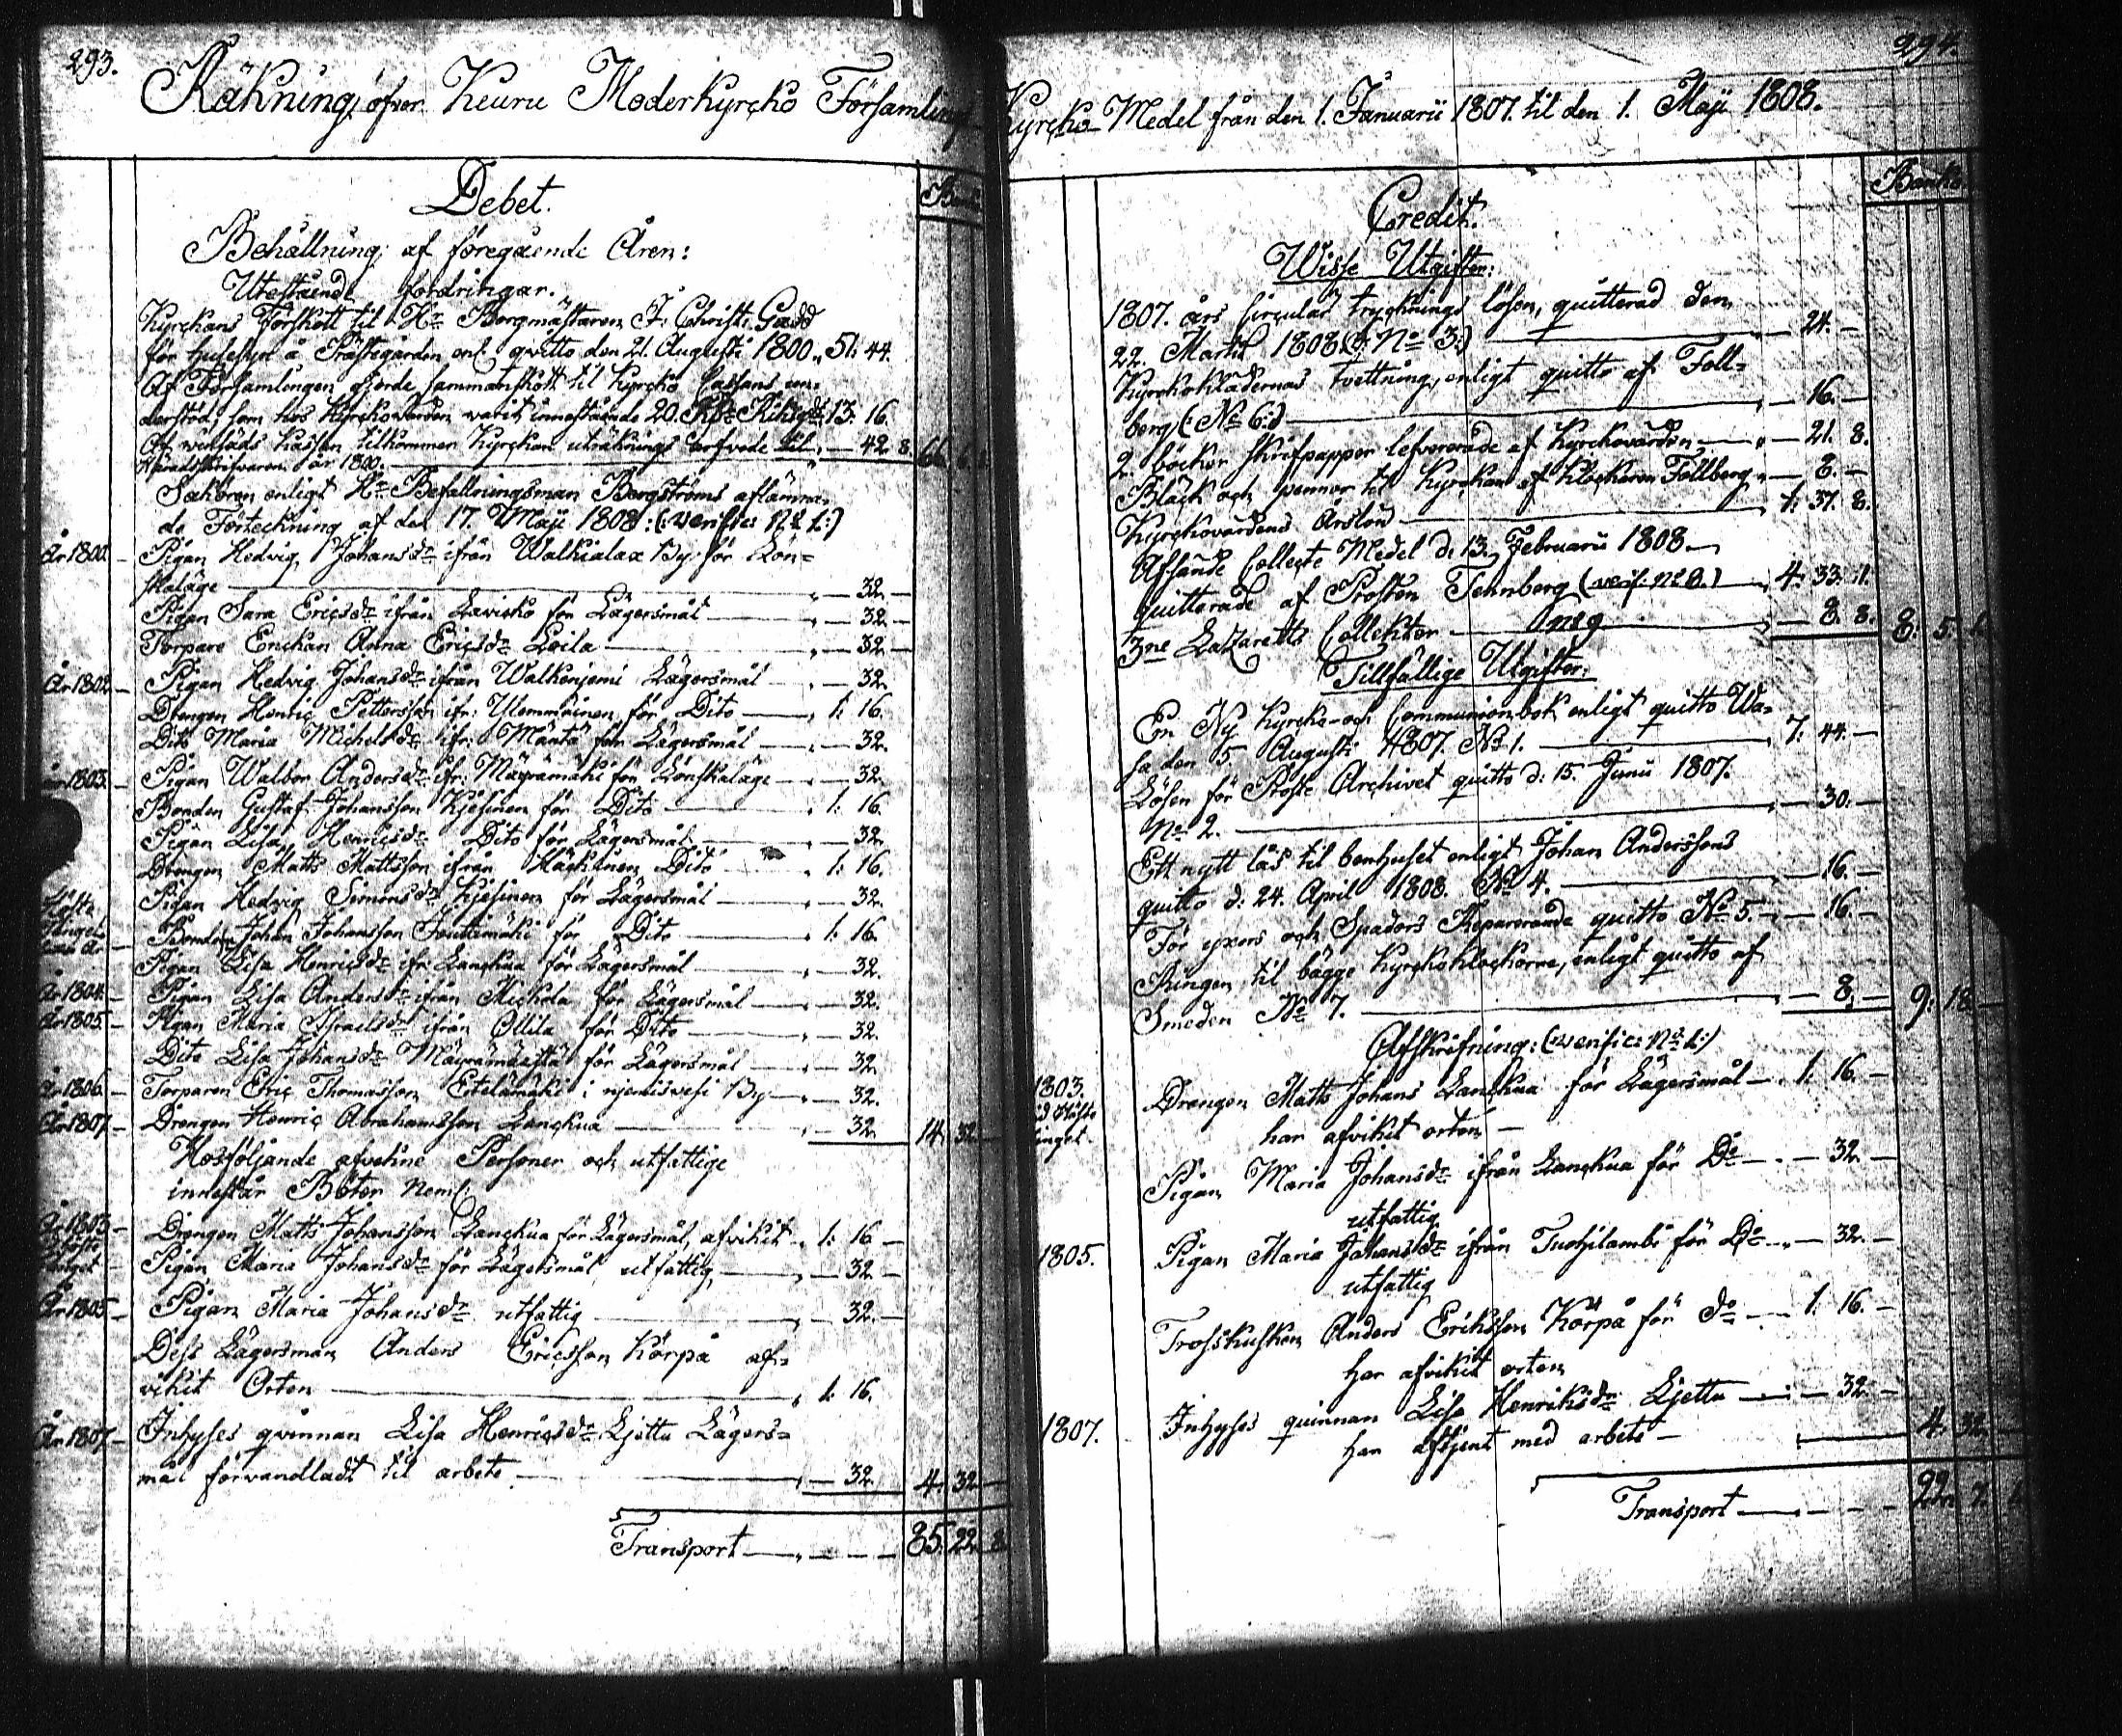 293.
Räkning öfver Keuru Moderkyrcko Församlings
Debet.
Banco
Behållning af föregående Åren:
Utestående fordringar.
Kyrckans Förskott til Hr Borgmästaren J: Christ: Gadd
för husesyn å Prästegården enl. qvitto den 21. Augusti 1800 „ 51: 44.
Af Församlingen gjorde sammanskott til Kyrcko Cassans un-
derstöd, som hos Kyrckovärden varit innestående 20. Rdr Riksg. 13: 16.
Af Kassan tilkommer Kyrckan uträknings arfvode til — 42. 8. 66
Häradsskrifvaren år 1800.
Saköron enligt Hr Befallningsman Bergströms aflämna-
de Förteckning af den 17. Maji 1808: (: verific: No 1:)
År 1800. Pigan Hedvig Johansdr ifrån Walkialax By för Lön-
skaläge — 32. —
Pigan Sara Ericsdr ifrån Lavisko för Lägersmål — 32. —
Torpare Enckan Anna Ericsdr Loila — 32 —
År 1802 — Pigan Hedvig Johansdr ifrån Walkenjemi Lägersmål — 32.
Drengen Henric Pettersson ifr: Ulemmäinen för Dito — 1: 16.
Dito Maria Michelsdr ifr: Mänttä för Lägersmål — 32.
År 1803. Pigan Walbor Andersdr ifr: Mäyrämäki för Lönskaläge — 32.
Bonden Gustaf Johansson Kjesinen för Dito — 1: 16.
Pigan Lisa Henricsdr Dito för Lägersmål — 32.
Drengen Matts Mattsson ifrån Häckinen Dito — 1: 16.
Pigan Hedvig Simonsdr Kjesinen för Lägersmål — 32.
Höste
Tinget
Bonden Johan Johansson Joutsimäki för Dito — 1: 16.
Pigan Lisa Henricsdr ifr: Lanckua för Lägersmål — 32.
År 1804 — Pigan Lisa Andersdr ifrån Mickola för Lägersmål — 32.
År 1805 — Pigan Maria Israelsdr ifrån Ollila för Dito — 32.
Dito Lisa Johansdr Mäyrämäeltä för Lägersmål — 32.
År 1806 — Torparen Eric Thomasson Etelämäki i njemisvesi By — 32.
År 1807 — Drengen Henric Abrahamsson Lanckua — 32. 14. 32 —
Hosföljande afvekne Personer och utfattige
innestår Böter neml.
År 1803 — Drengen Matts Johansson Lanckua för Lägersmål, afvikit 1: 16 —
Höste
Tinget — Pigan Maria Johansdr för Lägersmål utfattig — 32 —
År 1805 — Pigan Maria Johansdr utfattig — 32. —
Dess Lägersman Anders Ericsson Körpå af-
vikit Orten — 1: 16.
År 1807 — Inhyses qvinnan Lisa Henricsdr Ljetta Lägers-
mål förvandladt til arbete — 32. 4. 32 —
Transport — 85. 22. 8
294.
Kyrcko-Medel från den 1. Januarii 1807. til den 1. Maji 1808.
Credit.
Banco
Wisse Utgifter:
1807. års Circulär trycknings lösen, quitterad den
22. Martii 1808. (: No 3:) — 24. —
Kyrckoklädernas tvettning, enligt quitto af Foll-
berg (: No 6:) — 16. —
2. böcker skrifpapper lefvererade af Kyrckovärden — 21. 8.
Bläck och pennor til Kyrckan af klockaren Follberg — 8. —
Kyrckovärdens Årslön — 1: 37. 8.
Afsände Collecte Medel d. 13. Februarii 1808 —
quitterade af Prosten Tennberg (verif: No 8.) — 4: 33. 1.
3ne Lazaretts Collekter — No 9 — 8. 8. 8: 5:
Tillfällige Utgifter:
En Ny Kyrcko- och Communionbok enligt quitto Wa-
sa den 5. Augusti 1807. No 1. — 7: 44. —
Lösen för Prosts Archivet quitto d: 15. Junii 1807.
No 2. — 30. —
Ett nytt lås til benhuset enligt Johan Anderssons
quitto d: 24. April 1808. No 4. — 16. —
För yxors och Spadars Reparerande quitto No 5. — 16. —
Ringen til bägge Kyrckoklockorne, enligt quitto af
Smeden No 7. — 8. — 9: 18 —
Afskrifning: (: verific: No 1:)
1803.
vid Höste
tinget.
Drengen Matts Johans Lanckua för Lägersmål — 1: 16. —
har afvikit orten —
Pigan Maria Johansdr ifrån Lanckua för Do — 32. —
utfattig
1805. Pigan Maria Johansdr ifrån Tuohilambi för Do — 32. —
utfattig
Trosskusken Anders Eriksson Körpå för do — 1: 16. —
har afvikit orten
1807. Inhyses quinnan Lisa Henriksdr Ljetta — 32 —
har aftjent med arbete — 4. 32 —
Transport — 22. 7.